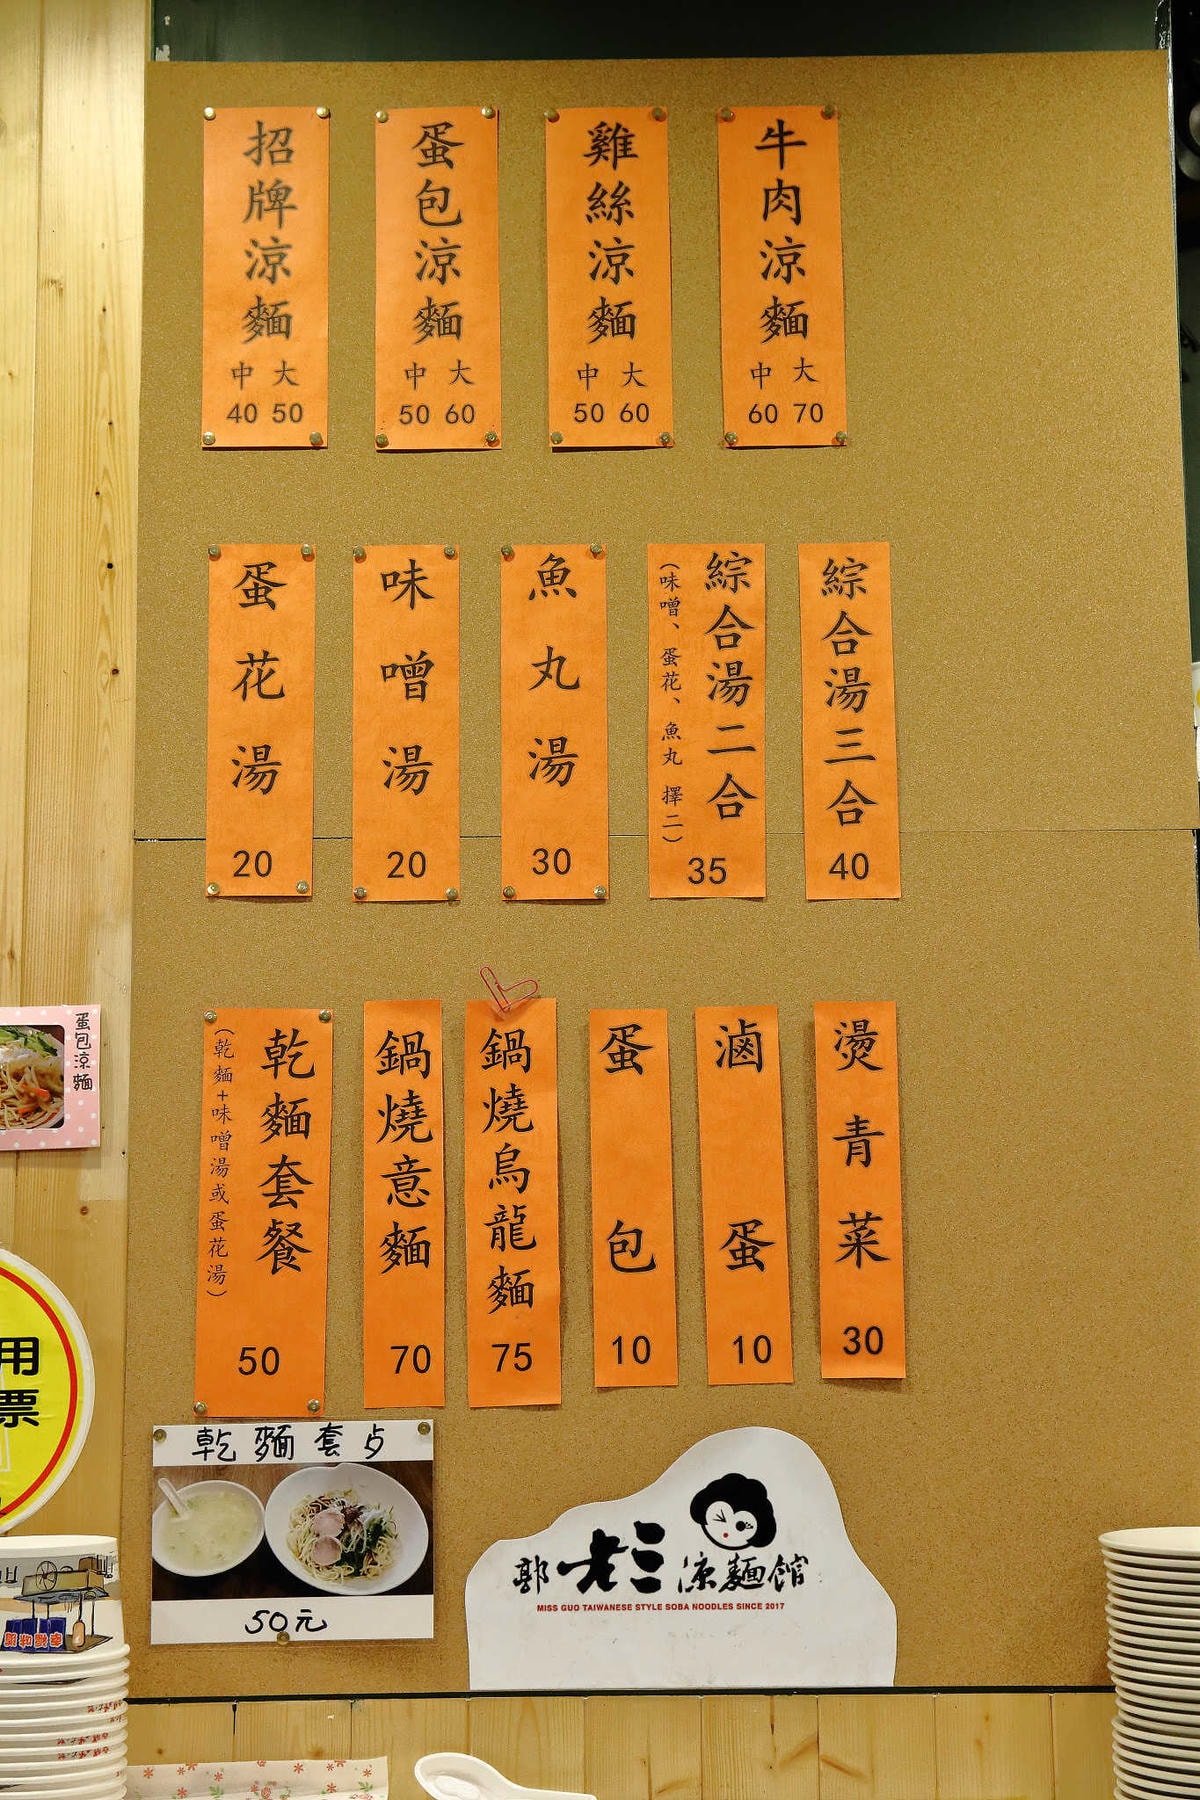 招牌涼麵
中 大
40 50
蛋包涼麵
中 大
50 60
雞絲涼麵
中 大
50 60
牛肉涼麵
中 大
60 70
蛋花湯
20
味噌湯
20
魚丸湯
30
綜合湯二合
（味噌、蛋花、魚丸 擇二）
35
綜合湯三合
40
乾麵套餐
（乾麵+味噌湯或蛋花湯）
50
鍋燒意麵
70
鍋燒烏龍麵
75
蛋包
10
滷蛋
10
燙青菜
30
蛋包涼麵
用
票
乾麵套歺
50元
郭老三涼麵館
MISS GUO TAIWANESE STYLE SOBA NOODLES SINCE 2017